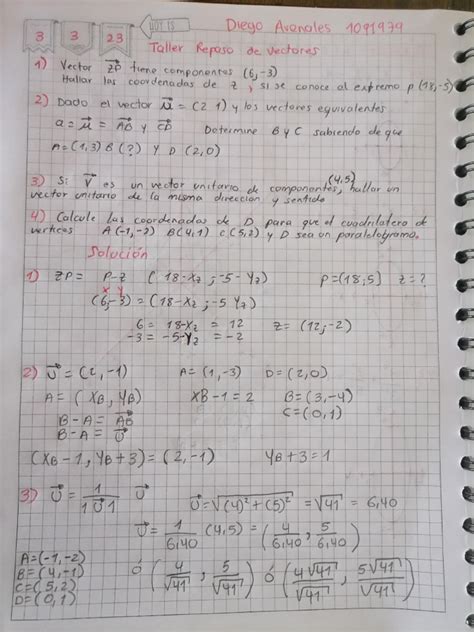 3 3 23 HOY ES Diego Avanales 1091979
Taller Repaso de vectores
1) Vector ZP tiene componentes (6,-3)
Hallar las coordenadas de z, si se conoce al extremo p(18,-5)
2) Dado el vector u = (2 1) y los vectores equivalentes
a = u = AB y CD Determine B y C sabiendo de que
A=(1,3) B(?) y D (2,0)
3) Si V es un vector unitario de componentes, (4,5) hallar un
vector unitario de la misma dirección y sentido
4) Calcule las coordenadas de D para que el cuadrilatero de
vertices A(-1,-2) B(4,1) C(5,2) y D sea un paralelogramo.
Solución
1) ZP = P-Z (18-Xz ; -5-Yz) P=(18,5] z=?
x y
(6,-3)=(18-Xz ; -5 Yz)
6 = 18-Xz = 12 z=(12,-2)
-3 = -5-Yz = -2
2) U = (2,-1) A=(1,-3) D=(2,0)
A=(XB, YB) XB-1=2 B=(3,-4)
B-A = AB C=(0,1)
B-A = U
(XB-1, YB+3) = (2,-1) YB+3=1
3) U = 1/1U1 U U=√(4)²+(5)² = √41 = 6,40
U = 1/6,40 (4,5) = (4/6,40, 5/6,40)
A=(-1,-2)
B=(4,-1) ó (4/√41, 5/√41) ó (4√41/√41, 5√41/√41)
C=(5,2)
D=(0,1)